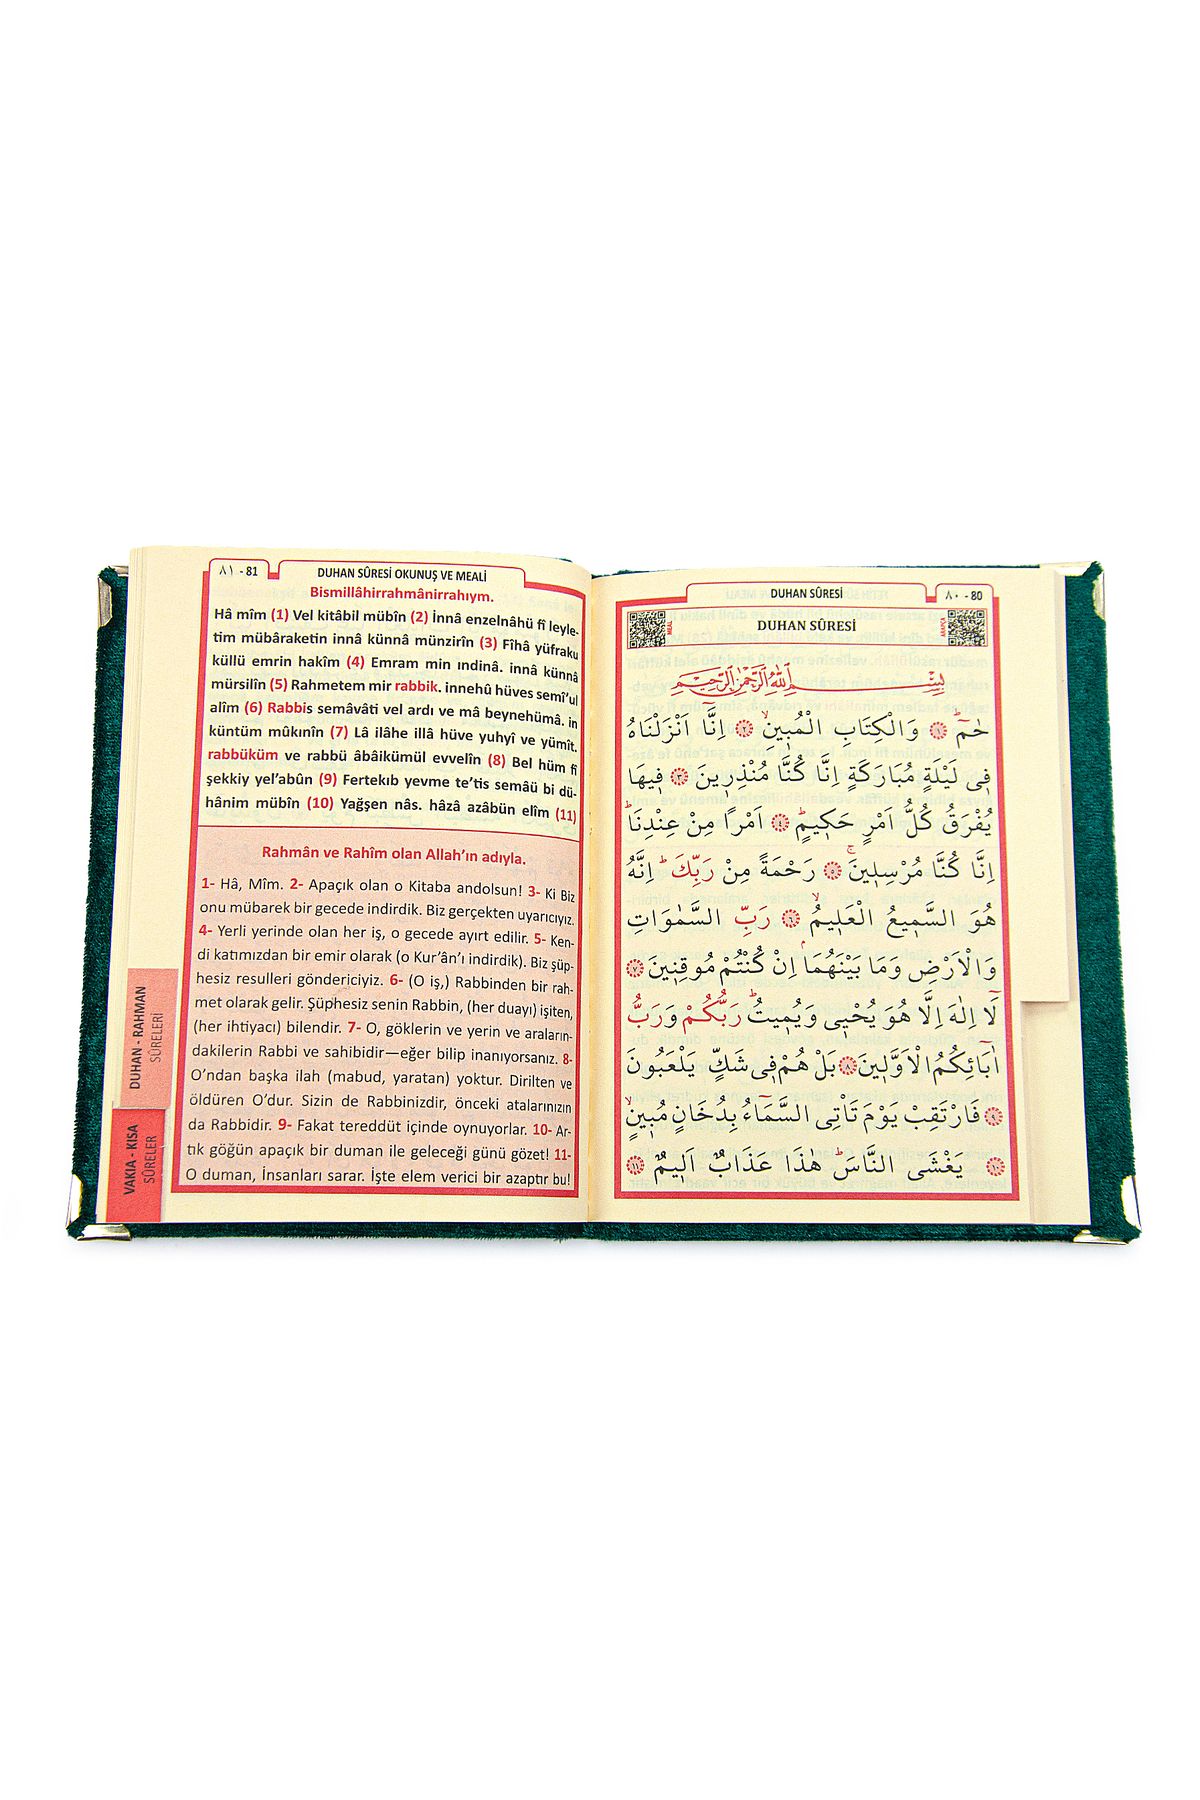 ٨١ - 81
DUHAN SÛRESİ OKUNUŞ VE MEALİ
Bismillâhirrahmânirrahıym.
Hâ mîm (1) Vel kitâbil mübîn (2) İnnâ enzelnâhü fî leyle-
tim mübâraketin innâ künnâ münzirîn (3) Fîhâ yüfraku
küllü emrin hakîm (4) Emram min ındinâ. innâ künnâ
mürsilîn (5) Rahmetem mir rabbik. innehû hüves semî’ul
alîm (6) Rabbis semâvâti vel ardı ve mâ beynehümâ. in
küntüm mûkınîn (7) Lâ ilâhe illâ hüve yuhyî ve yümît.
rabbüküm ve rabbü âbâikümül evvelîn (8) Bel hüm fî
şekkiy yel’abûn (9) Fertekıb yevme te’tis semâü bi dü-
hânim mübîn (10) Yağşen nâs. hâzâ azâbün elîm (11)
Rahmân ve Rahîm olan Allah’ın adıyla.
1- Hâ, Mîm. 2- Apaçık olan o Kitaba andolsun! 3- Ki Biz
onu mübarek bir gecede indirdik. Biz gerçekten uyarıcıyız.
4- Yerli yerinde olan her iş, o gecede ayırt edilir. 5- Ken-
di katımızdan bir emir olarak (o Kur’ân’ı indirdik). Biz şüp-
hesiz resulleri göndericiyiz. 6- (O iş,) Rabbinden bir rah-
met olarak gelir. Şüphesiz senin Rabbin, (her duayı) işiten,
(her ihtiyacı) bilendir. 7- O, göklerin ve yerin ve araların-
dakilerin Rabbi ve sahibidir—eğer bilip inanıyorsanız. 8-
O’ndan başka ilah (mabud, yaratan) yoktur. Dirilten ve
öldüren O’dur. Sizin de Rabbinizdir, önceki atalarınızın
da Rabbidir. 9- Fakat tereddüt içinde oynuyorlar. 10- Ar-
tık göğün apaçık bir duman ile geleceği günü gözet! 11-
O duman, İnsanları sarar. İşte elem verici bir azaptır bu!
DUHAN - RAHMAN
SÛRELERİ
VAKIA - KISA
SÛRELER
DUHAN SÛRESİ
٨٠ - 80
MEAL
DUHAN SÛRESİ
ARAPÇA
بِسْمِ اللّٰهِ الرَّحْمٰنِ الرَّحِيمِ
حٰمٓ ۜ ﴿١﴾ وَالْكِتَابِ الْمُبٖينِۙ ﴿٢﴾ اِنَّٓا اَنْزَلْنَاهُ
فٖى لَيْلَةٍ مُبَارَكَةٍ اِنَّا كُنَّا مُنْذِرٖينَ ﴿٣﴾ فٖيهَا
يُفْرَقُ كُلُّ اَمْرٍ حَكٖيمٍۜ ﴿٤﴾ اَمْرًا مِنْ عِنْدِنَاۜ
اِنَّا كُنَّا مُرْسِلٖينَۚ ﴿٥﴾ رَحْمَةً مِنْ رَبِّكَۜ اِنَّهُ
هُوَ السَّمٖيعُ الْعَلٖيمُۙ ﴿٦﴾ رَبِّ السَّمٰوَاتِ
وَالْاَرْضِ وَمَا بَيْنَهُمَاۢ اِنْ كُنْتُمْ مُوقِنٖينَ ﴿٧﴾
لَٓا اِلٰهَ اِلَّا هُوَ يُحْيٖى وَيُمٖيتُۜ رَبُّكُمْ وَرَبُّ
اٰبَٓائِكُمُ الْاَوَّلٖينَ ﴿٨﴾ بَلْ هُمْ فٖى شَكٍّ يَلْعَبُونَ
﴿٩﴾ فَارْتَقِبْ يَوْمَ تَاْتِى السَّمَٓاءُ بِدُخَانٍ مُبٖينٍۙ
﴿١٠﴾ يَغْشَى النَّاسَۜ هٰذَا عَذَابٌ اَلٖيمٌ ﴿١١﴾